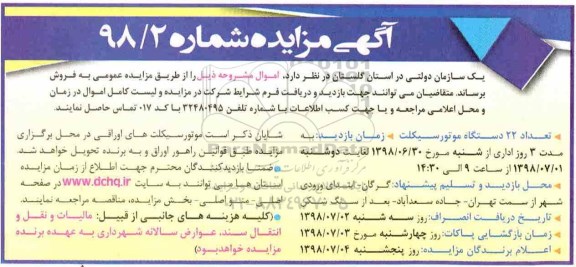 آگهی مزایده شماره ۹۸/۲
یک سازمان دولتی در استان گلستان در نظر دارد، اموال مشروحه ذیل را از طریق مزایده عمومی به فروش
برساند. متقاضیان می توانند جهت بازدید و دریافت فرم شرایط شرکت در مزایده و لیست کامل اموال در زمان
و محل اعلامی مراجعه و یا جهت کسب اطلاعات با شماره تلفن ۳۲۴۸۰۴۹۵ با کد ۰۱۷ تماس حاصل نمایند.
تعداد ۲۲ دستگاه موتورسیکلت زمان بازدید: به
مدت ۳ روز اداری از شنبه مورخ ۱۳۹۸/۰۶/۳۰ لغایت دوشنبه
۱۳۹۸/۰۷/۰۱ از ساعت ۹ الی ۱۴:۳۰
محل بازدید و تسلیم پیشنهاد: گرگان، ابتدای ورودی
شهر از سمت تهران- جاده سعدآباد- بعد از
تاریخ دریافت انصراف: روز سه شنبه ۱۳۹۸/۰۷/۰۲
زمان بازگشایی پاکات: روز چهارشنبه مورخ ۱۳۹۸/۰۷/۰۳
اعلام برندگان مزایده: روز پنجشنبه ۱۳۹۸/۰۷/۰۴
شایان ذکر است موتورسیکلت های اوراقی در محل برگزاری
مزایده طبق قوانین راهور اوراق و به برنده تحویل خواهد شد.
ضمنا بازدیدکنندگان محترم جهت اطلاع از زمان مزایده
استان ها می توانند به سایت www.dchq.ir در صفحه
اصلی- بخش مزایده، مناقصه مراجعه نمایند.
(کلیه هزینه های جانبی از قبیل: مالیات و نقل و
انتقال سند، عوارض سالانه شهرداری به عهده برنده
مزایده خواهدبود)